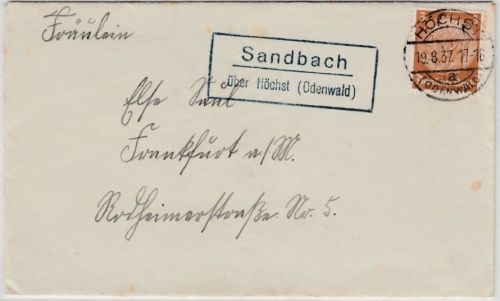 Fräulein
Sandbach
über Höchst (Odenwald)
HÖCHST
19.8.37.17-16
a
(ODENWALD)
Else Saal
Frankfurt a/M.
Rodheimerstraße No. 5.